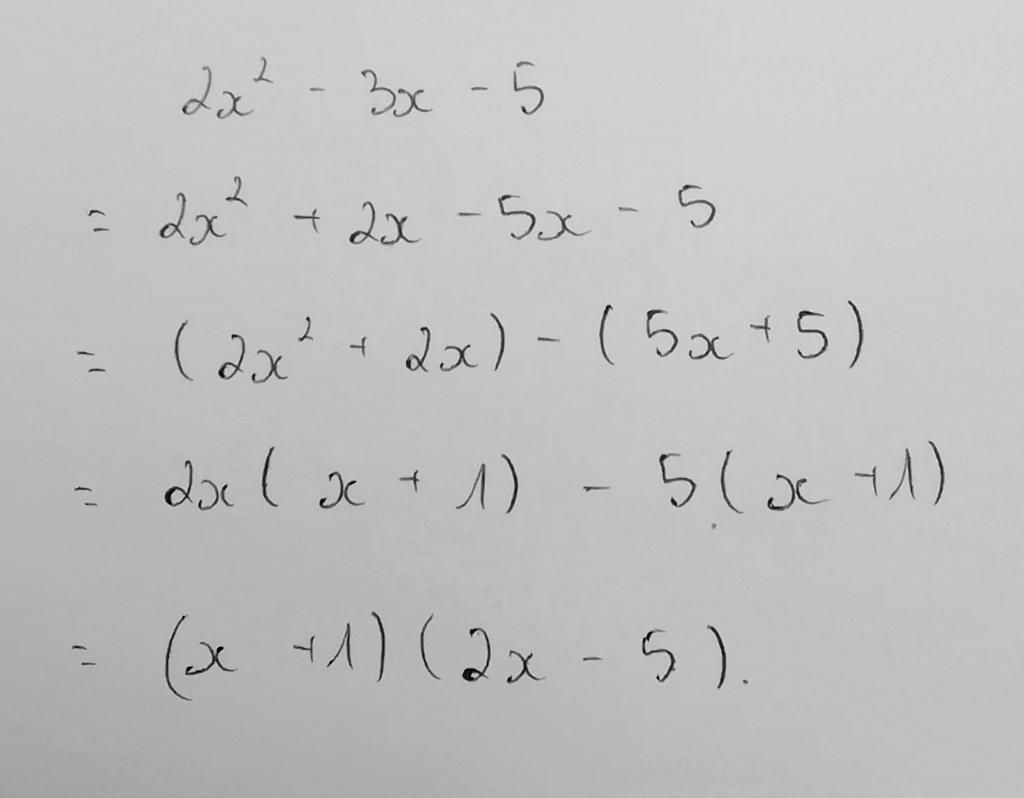 2x² - 3x - 5
= 2x² + 2x - 5x - 5
= (2x² + 2x) - (5x + 5)
= 2x(x + 1) - 5(x + 1)
= (x + 1)(2x - 5).